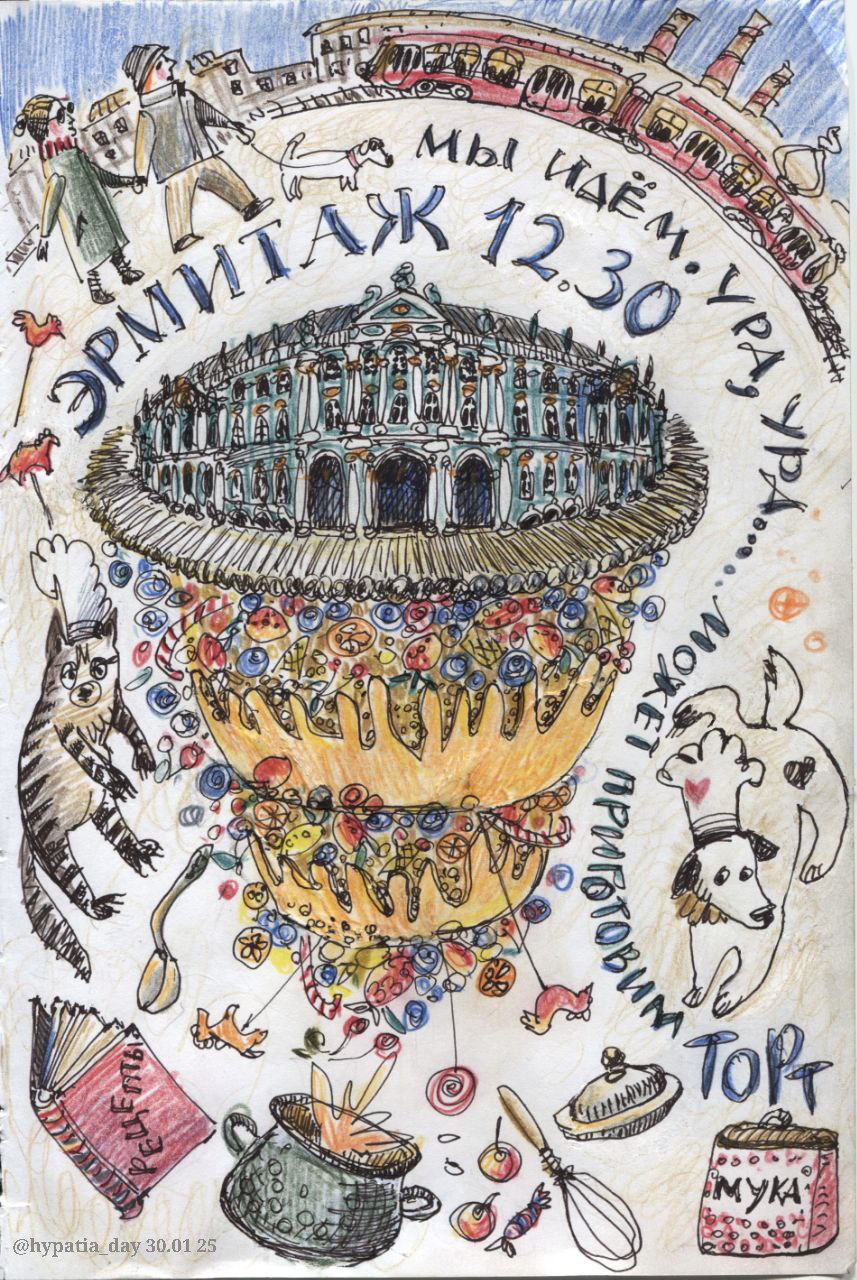 МЫ ИДЁМ. УРА, УРА....
ЭРМИТАЖ 12.30
МОЖЕТ ПРИГОТОВИМ
ТОРТ
РЕЦЕПТЫ
МУКА
@hypatia_day 30.01 25